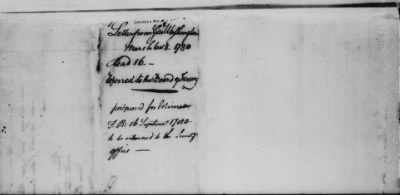 Letter from Genl Washington
March 1780
Read 16. —
Referred to the Board of Treasury
postponed for Estimates
16 September 1780
to be returned to the Secrety
office —